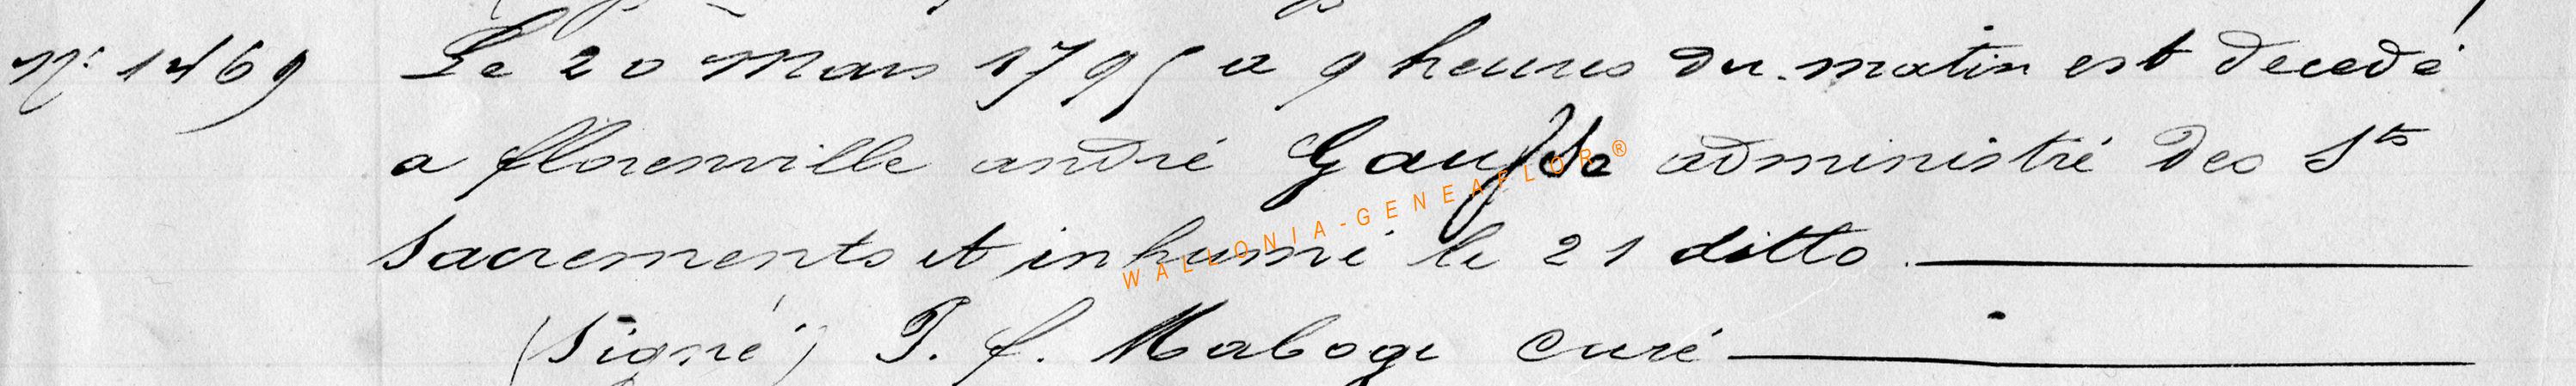 N° 1469 Le 20 Mars 1795 a 9 heures du matin est decedé
a florenville andré Gauffe administré des Sts
Sacrements et inhumé le 21 ditto.
(Signé) P. f. Maboge Curé
WALLONIA-GENEAFLOR®